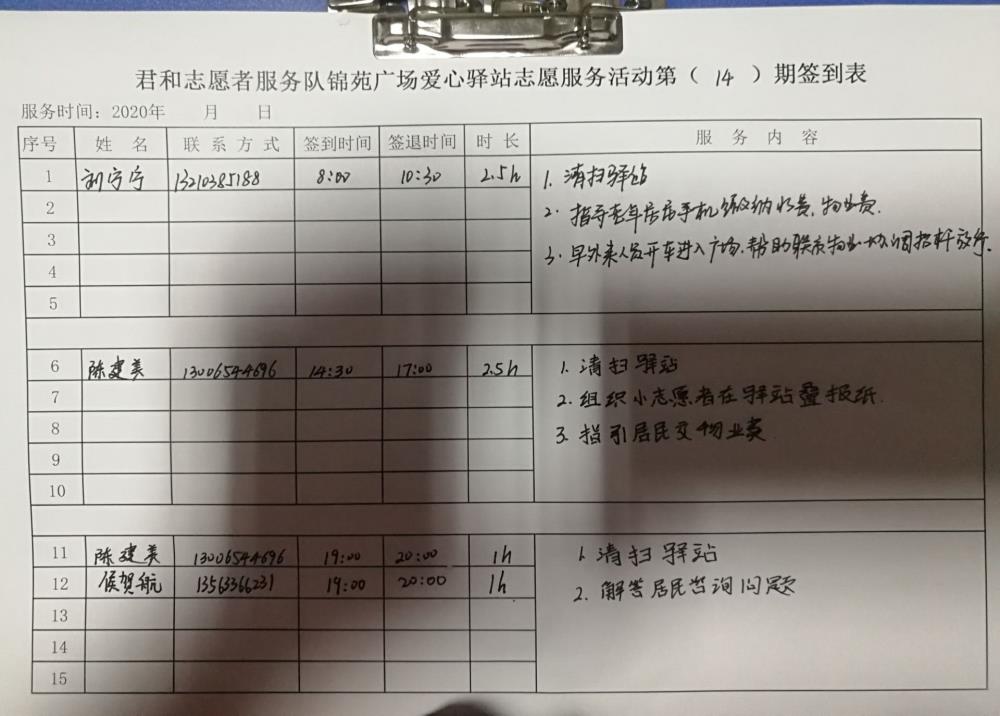 君和志愿者服务队锦苑广场爱心驿站志愿服务活动第（ 14 ）期签到表
服务时间：2020年 月 日
序号 姓 名 联 系 方 式 签到时间 签退时间 时 长 服 务 内 容
1 刘宁宁 13210385188 8:00 10:30 2.5h 1. 清扫驿站
2 2. 指导老年居民手机缴纳水费、物业费.
3 3. 早外来人员开车进入广场,帮助联系物业协调抬杆放行.
4
5
6 陈建美 13006544696 14:30 17:00 2.5h 1. 清扫驿站
7 2. 组织小志愿者在驿站叠报纸.
8 3. 指引居民交物业费
9
10
11 陈建美 13006544696 19:00 20:00 1h 1. 清扫驿站
12 候贺航 13563366231 19:00 20:00 1h 2. 解答居民咨询问题
13
14
15